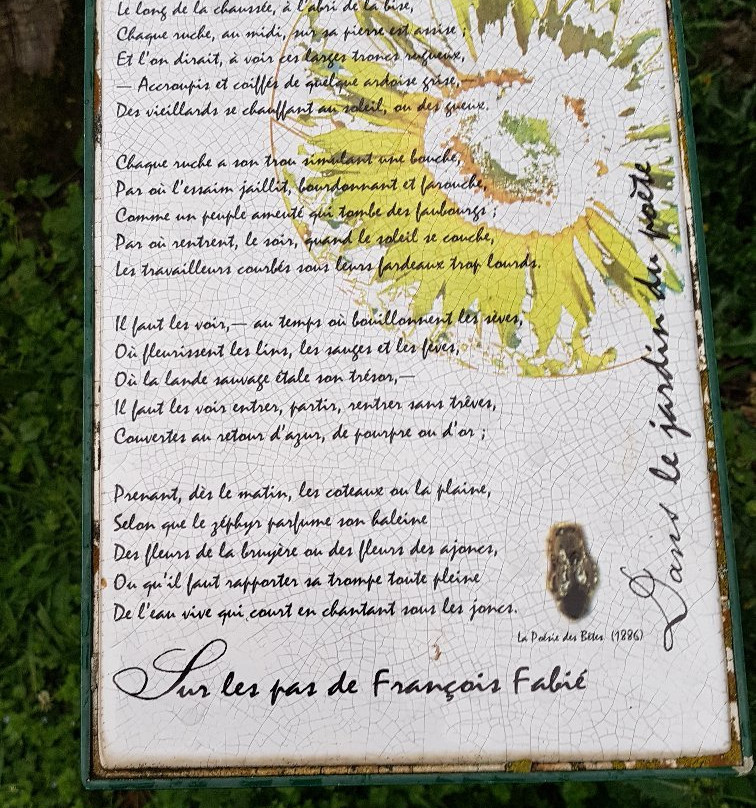 Le long de la chaussée, à l'abri de la bise,
Chaque ruche, au midi, sur sa pierre est assise ;
Et l'on dirait, à voir ces larges troncs rugueux,
— Accroupis et coiffés de quelque ardoise grise,—
Des vieillards se chauffant au soleil, ou des gueux.
Chaque ruche a son trou simulant une bouche,
Par où l'essaim jaillit, bourdonnant et farouche,
Comme un peuple ameuté qui tombe des faubourgs ;
Par où rentrent, le soir, quand le soleil se couche,
Les travailleurs courbés sous leurs fardeaux trop lourds.
Il faut les voir,— au temps où bouillonnent les sèves,
Où fleurissent les lins, les sauges et les fèves,
Où la lande sauvage étale son trésor,—
Il faut les voir entrer, partir, rentrer sans trêves,
Couvertes au retour d'azur, de pourpre ou d'or ;
Prenant, dès le matin, les coteaux ou la plaine,
Selon que le zéphyr parfume son haleine
Des fleurs de la bruyère ou des fleurs des ajoncs,
Ou qu'il faut rapporter sa trompe toute pleine
De l'eau vive qui court en chantant sous les joncs.
La Poésie des Bêtes (1886)
Sur les pas de François Fabié
Dans le jardin du poète